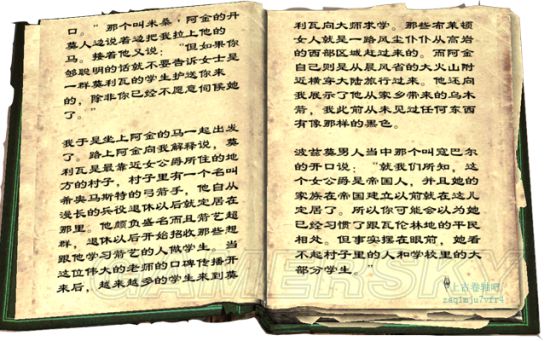 口。”那个叫米桑，阿金的丹
莫人边说着边把我拉上他的
马。接着他又说：“但如果你
够聪明的话就不要告诉女士是
一群莫利瓦的学生护送你来
的，除非你已经不愿意伺候她
了。”
我于是坐上阿金的马一起出发
了。路上阿金向我解释说，莫
利瓦是最靠近女公爵所住的地
方的村子，村子里有一个名叫
希奥马斯特的弓箭手，他自从
漫长的兵役退休以后就定居在
那里。他颇负盛名而且箭艺超
群，退休以后开始招收那些想
跟他学习箭艺的人做学生。当
这位伟大的老师的口碑传播开
来后，越来越多的学生来到莫
利瓦向大师求学。那些布莱顿
女人就是一路风尘仆仆从高岩
的西部区域赶过来的。而阿金
自己则是从晨风省的大火山附
近横穿大陆旅行过来。他还向
我展示了他从家乡带来的乌木
箭，我此前从未见过任何东西
有像那样的黑色。
波兹莫男人当中那个叫寇巴尔
的开口说：“就我们所知，这
个女公爵是帝国人，并且她的
家族在帝国建立以前就在这儿
定居了。所以你可能会以为她
已经习惯了跟瓦伦林地的平民
相处。但事实摆在眼前，她看
不起村子里的人和学校里的大
部分学生。”
GAMERSKY
上古卷轴吧
zaqimju7vfr4